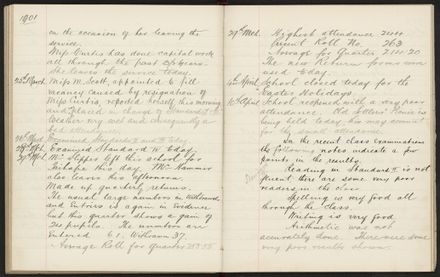 1901
on the occasion of her leaving the
service.
Miss Curtis has done capital work
all through the past years.
She leaves the service today.
25th March Miss M. Scott, appointed to fill
vacancy caused by resignation of
Miss Curtis, reported herself this morning
and placed in charge of Standard
Weather very wet and consequently a
bad attendance.
Examined Standard
Examined Standard today.
Mr left this school for
this day. Mr
also leaves this afternoon.
Made up quarterly returns.
The usual large numbers in Withdrawals
and Entries is again in evidence
but this quarter shows a gain of
pupils. The numbers are
Entered 61. Withdrawn 37
Average Roll for Quarter
29th Mch. Highest attendance 244
Present Roll No. 263
Average for Quarter
The new Return forms were
used today.
4th April School closed today for the
Easter Holidays.
School reopened with a very poor
attendance. Old Settlers' Picnic is
being held today this may account
for the small attendance.
In the recent class examinations
the following notes indicate a few
points in the results.
Reading in Standard is not
fluent there are some very poor
readers in the class
Spelling is very good all
through the class.
Writing is very good.
Arithmetic was not
accurately done. There were some
very poor results shown.